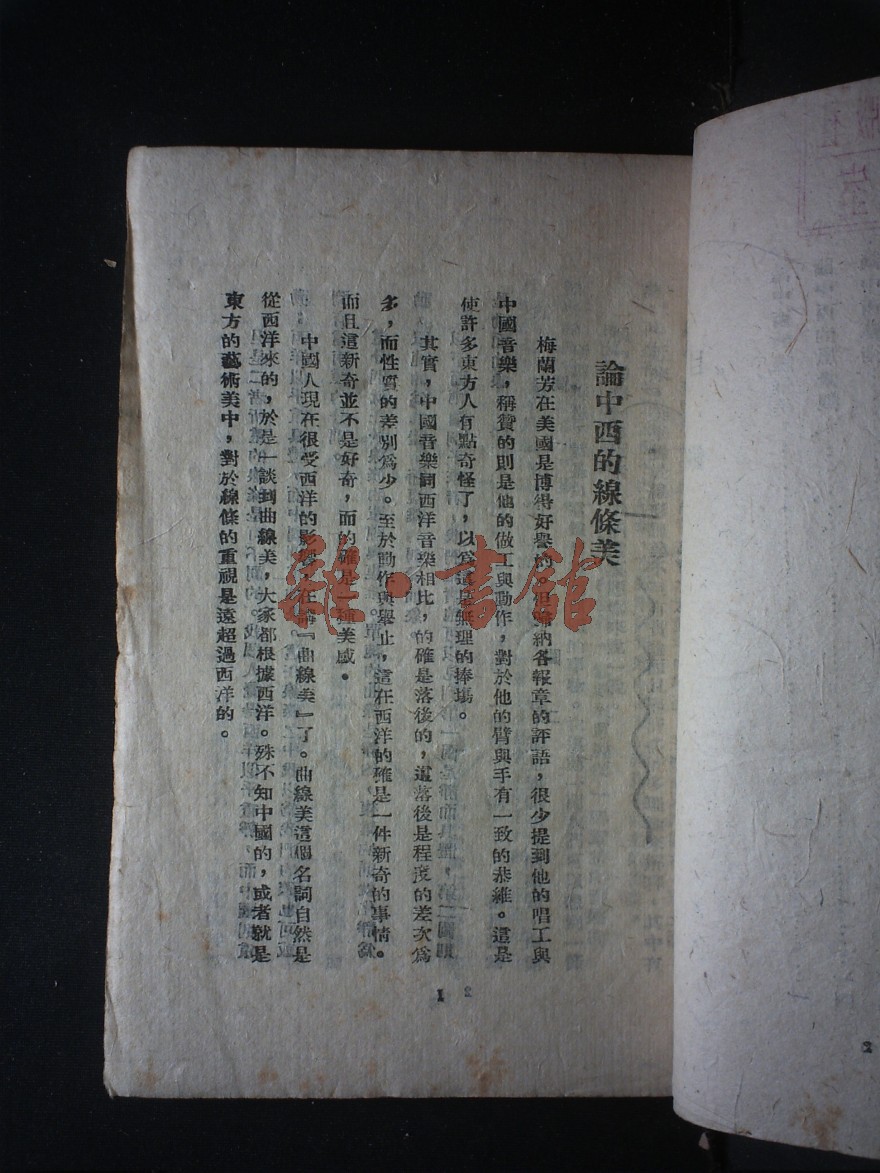 論中西的線條美
梅蘭芳在美國是博得好譽的。但歸納各報章的評語，很少提到他的唱工與
中國音樂，稱贊的則是他的做工與動作，對於他的臂與手有一致的恭維。這是
使許多東方人有點奇怪了，以為這是無理的捧場。
其實，中國音樂同西洋音樂相比，的確是落後的，這落後是程度的差次為
多，而性質的差別為少。至於動作與舉止，這在西洋的確是一件新奇的事情。
而且這新奇並不是好奇，而的確是一種美感。
中國人現在很受西洋的影響，在講『曲線美』了。曲線美這個名詞自然是
從西洋來的，於是一談到曲線美，大家都根據西洋。殊不知中國的，或者就是
東方的藝術美中，對於線條的重視是遠超過西洋的。
1
2
雜·書館
2